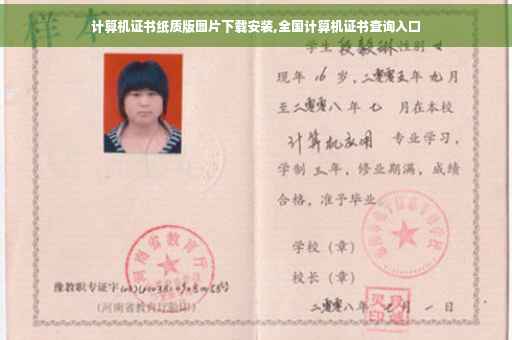 计算机证书纸质版图片下载安装,全国计算机证书查询入口
样本
学生 段毅琳 性别 女
现年 16 岁,二零零五年 九月
至二零零八年 七 月在本校
计算机应用 专业学习,
学制 三 年,修业期满,成绩
合格,准予毕业
学校(章)
校长(章)
河南省教育厅
豫教职专证字
(河南省教育厅验印)
二零零八年 七 月 一 日